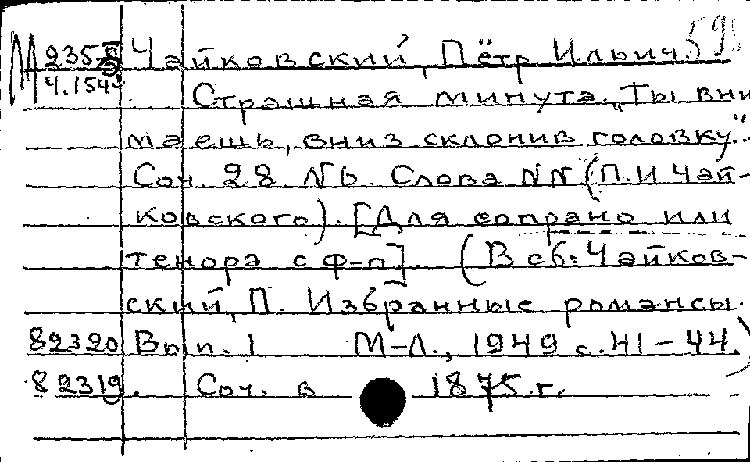 М 2355 Чайковский, Пётр Ильич. 59
Ч.154 Страшная минута. "Ты вни-
маешь, вниз склонив головку"..
Соч. 28 №6. Слова NN (П.И Чай-
ковского). [Для сопрано или
тенора с ф-п] (В сб: Чайков-
ский, П. Избранные романсы.
82320 Вып. 1 М-Л., 1949 с. 41-44.)
82319. Соч. в 1875.г.